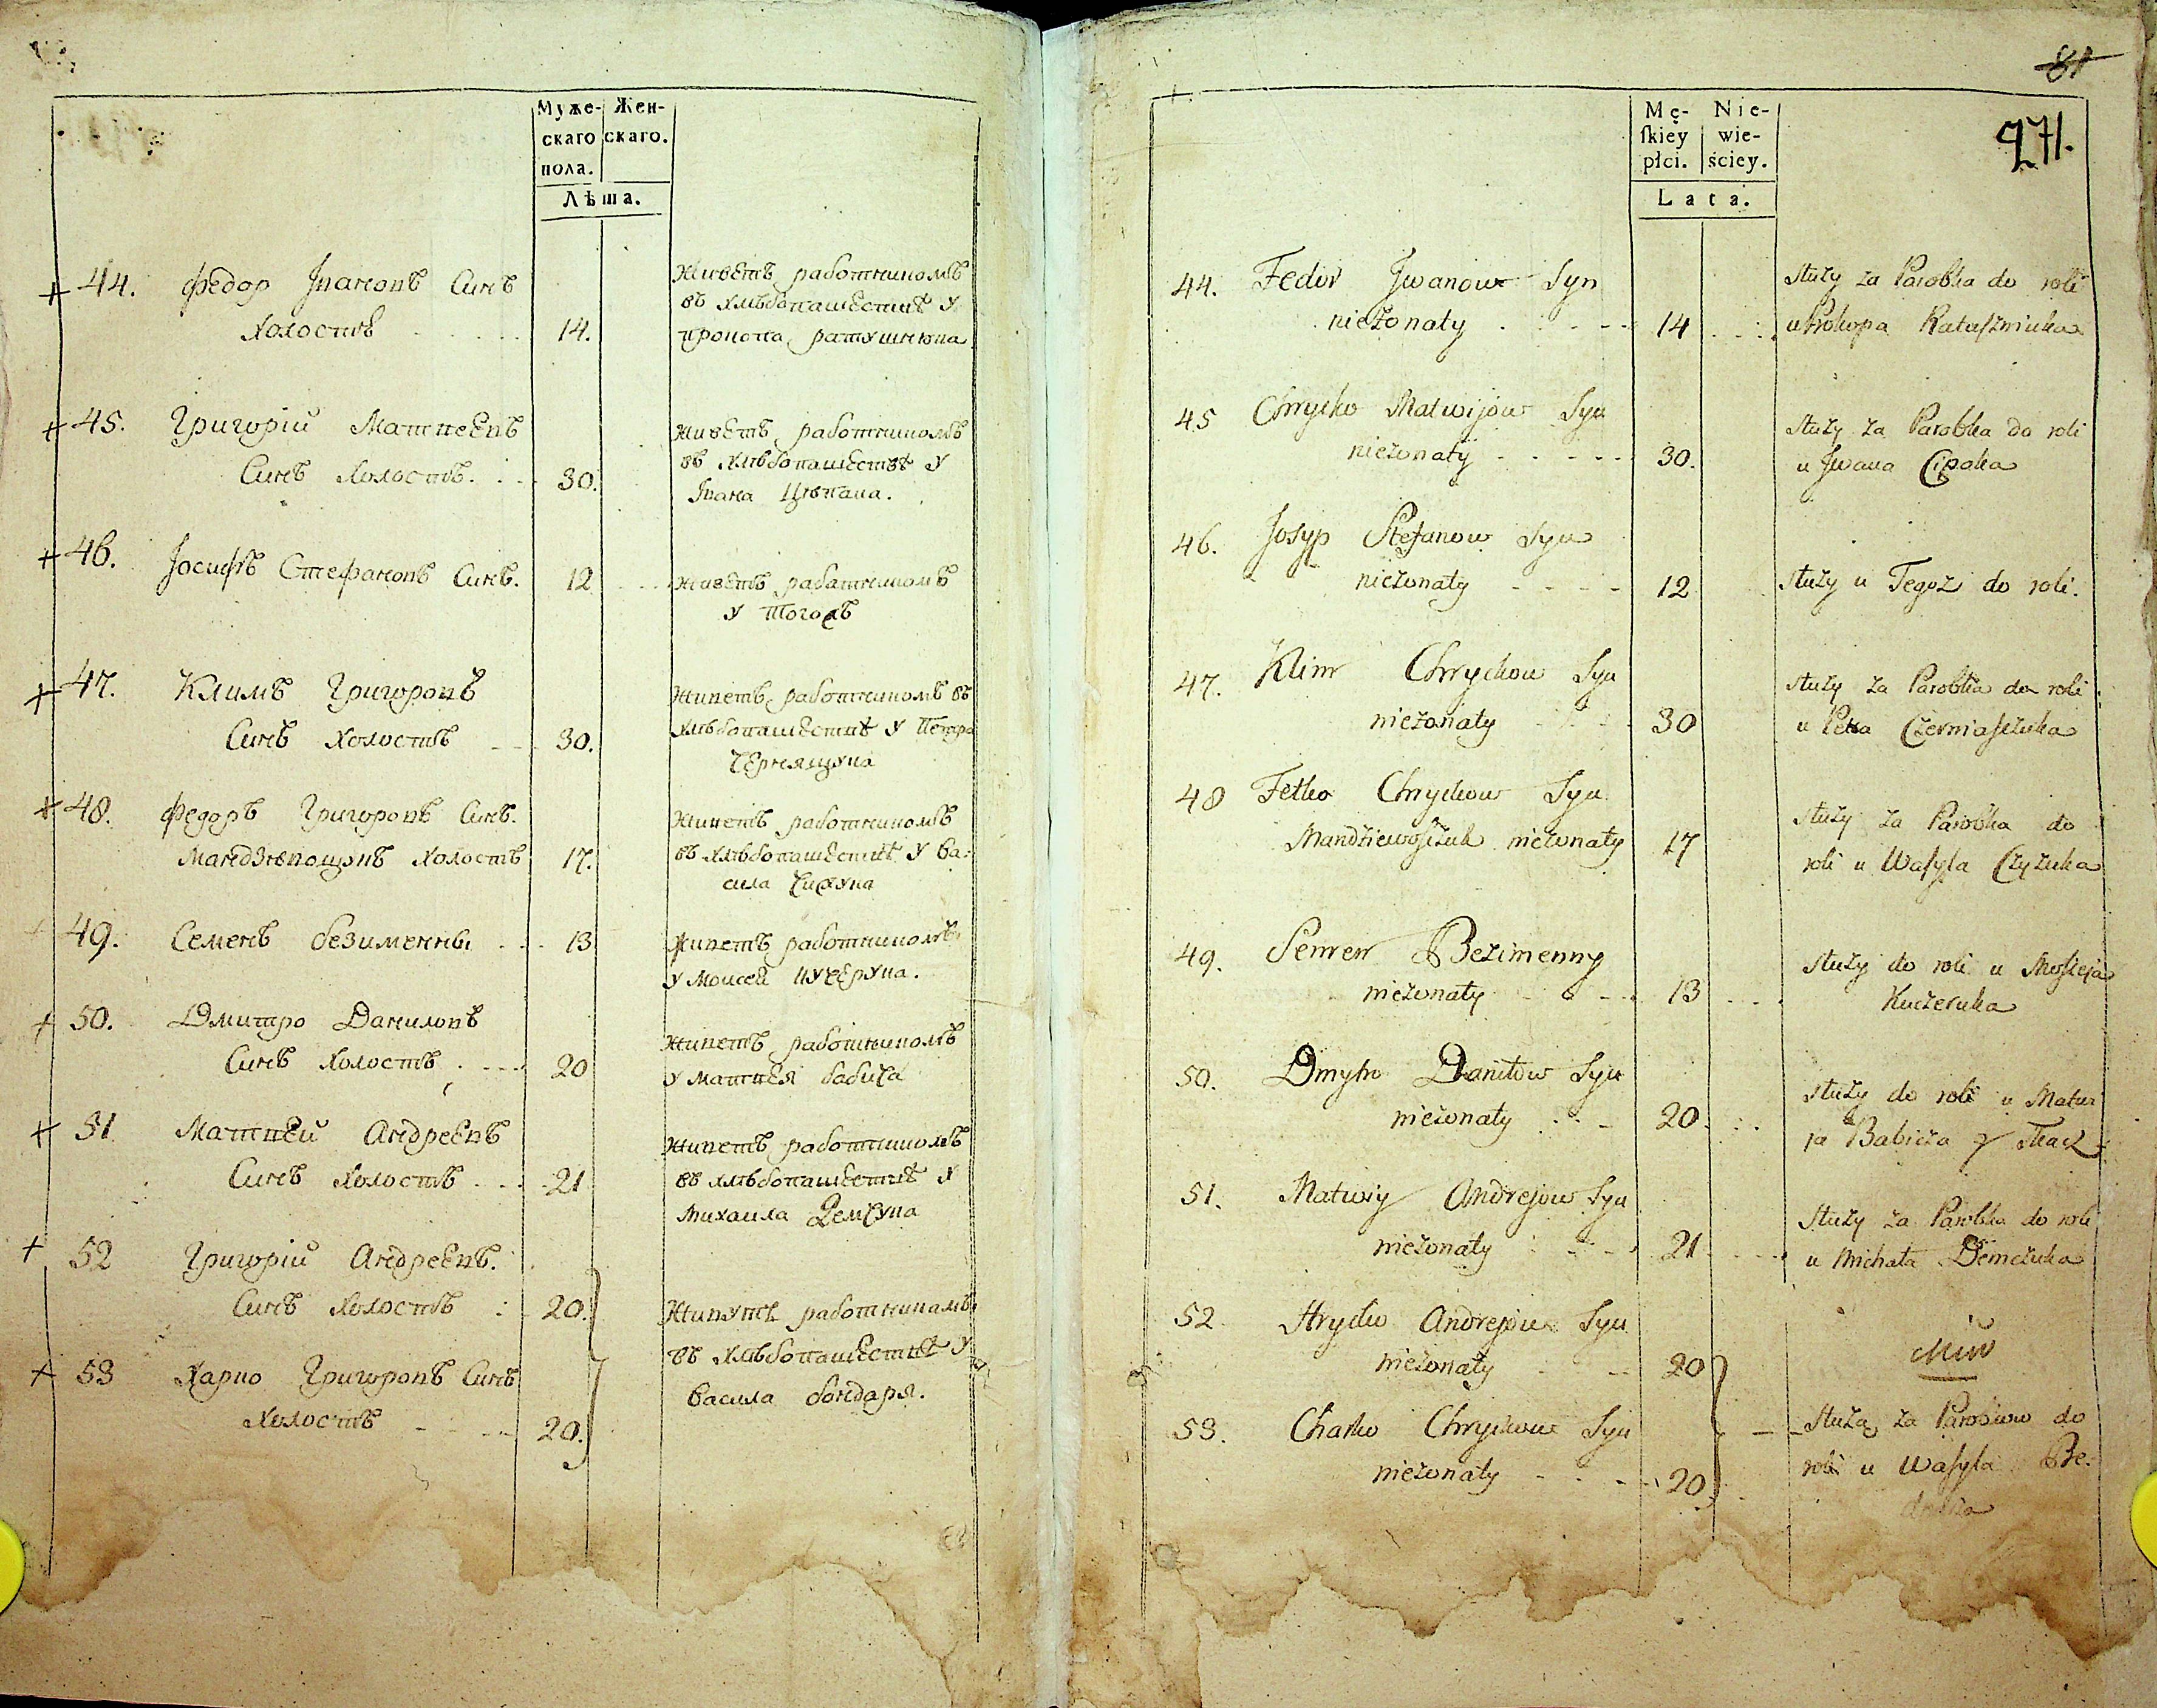 Муже- Жен-
скаго скаго.
пола.
Лѣта.
+ 44. Федор Іванонъ Синъ
холостъ 14.
Живетъ работникомъ
въ хлѣбопашестве у
прокопа ратушнюка
+ 45. Григорій Матвеевъ
Синъ холостъ. 30.
живетъ работникомъ
въ хлѣбопашествѣ у
Івана Цѣпака.
+ 46. Іосифъ Стефановъ Синъ. 12
живетъ работникомъ
у тогожъ
+ 47. Климъ Григоровъ
Синъ холостъ 30.
живетъ работникомъ въ
хлѣбопашествѣ у Петра
Чернящука
+ 48. Федоръ Григоровъ Синъ.
Мандзѣвощукъ холостъ 17.
живетъ работникомъ
въ хлѣбопашествѣ у ва-
сила Чижука
+ 49. Семенъ безименны 13
живетъ работникомъ
у Моисея кучерука.
+ 50. Дмитро Даниловъ
Синъ холостъ 20
живетъ работникомъ
у Матвея бабича
+ 51 Матвей Андреевъ
Синъ холостъ 21
живетъ работникомъ
въ хлѣбопашествѣ у
михаила Демчука
+ 52 Григорій Андреевъ.
Синъ холостъ 20.
+ 53 Харко Григоровъ Синъ
холостъ 20.
живутъ работникамы
въ хлѣбопашествѣ у
васила бондаря.
81
271.
Mę- Nie-
ſkiey wie-
płci. ściey.
Lata.
44. Fedor Jwanow Syn
nieżonaty 14
służy za Parobka do roli
u Prokopa Ratuſzniuka
45 Chrycko Matwijow Syn
nieżonaty 30.
służy za Parobka do roli
u Jwana Cipaka
46. Josyp Stefanow Syn
nieżonaty 12
służy u Tegoż do roli.
47. Klim Chryckow Syn
nieżonaty 30
służy za Parobka do roli
u Petra Czerniaſzczuka
48 Fetko Chryckow Syn
Mandziewoſzczuk nieżonaty 17
służy za Parobka do
roli u Waſyla Czyżuka
49. Semen Bezimenny
nieżonaty 13
służy do roli u Moſieja
Kuczeruka
50. Dmytro Daniłow Syn
nieżonaty 20
służy do roli u Matwi
ja Babicza y Tkacz
51. Matwiy Andrejow Syn
nieżonaty 21
służy za Parobka do roli
u Michała Demczuka
52. Hrycko Andrejow Syn
nieżonaty 20
53. Charko Chryckow Syn
nieżonaty 20
służą za Parobkow do
roli u Waſyla Be-